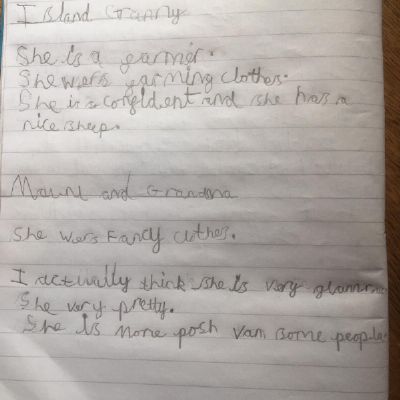 Island Granny
She is a farmer.
She wers farming clothes.
She is a confident and she has a
nice sheep.
Mainland Grandma
She wers Fancy clothes.
I actually think she is very
She very pretty.
She is more posh van some people